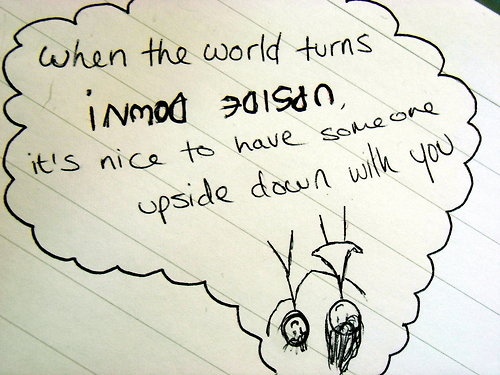 when the world turns
UPSIDE DOWN!,
it's nice to have someone
upside down with you